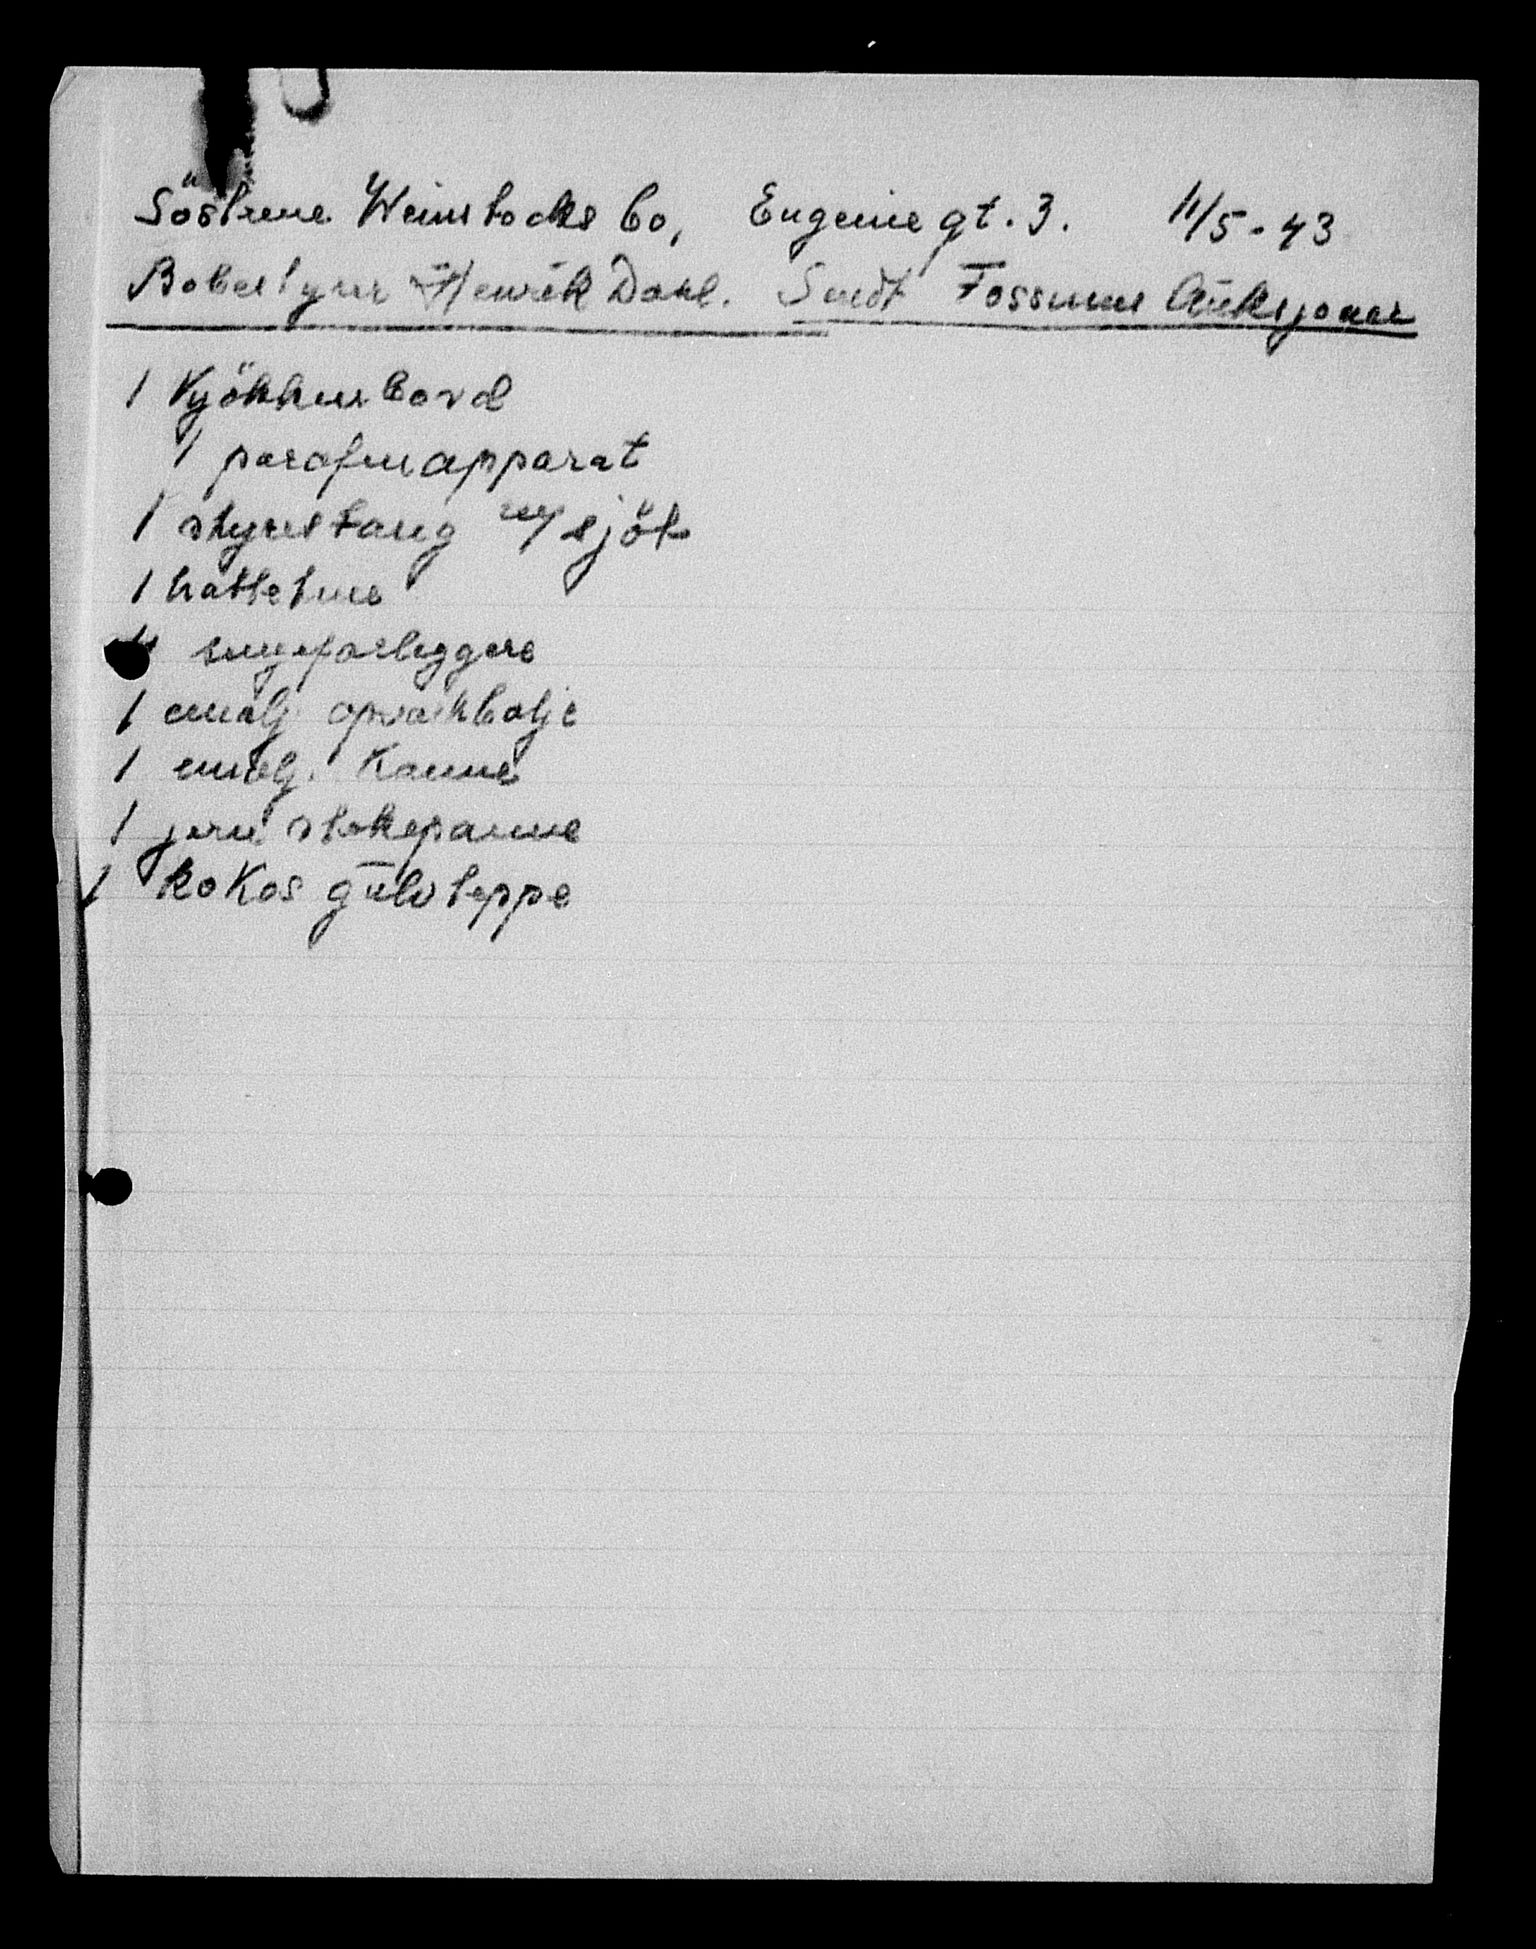 Söstrene Weinstocks bo, Eugenie gt. 3. 11/5-43
Bobestyrer Henrik Dahl. Sendt Fossums Auksjoner
1 Kjökkenbord
1 parafinapparat
1 styrestang m/ sjöt
1 hattetine
4 sengeforleggere
1 emalj. opvaskbalje
1 emalj. Kanne
1 jern stekepanne
1 kokos gulvteppe